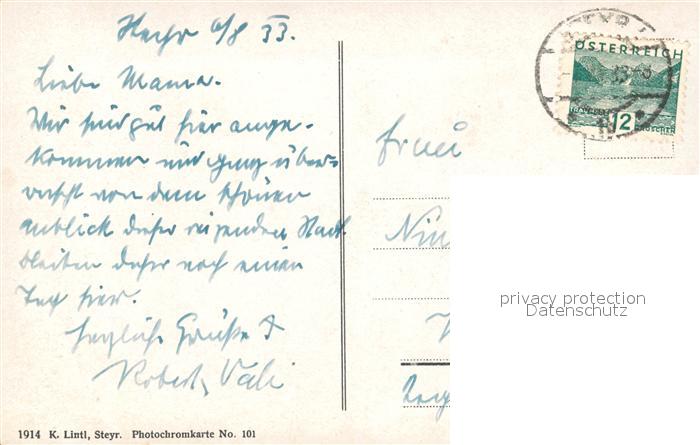 Steyr 6/8 33.
Liebe Mama.
Wir sind gut hier ange-
kommen und ganz über-
rascht von dem schönen
Anblick dieser reizenden Stadt.
bleiben daher noch einen
Tag hier.
herzliche Grüße
Robert, Vali
1914 K. Lintl, Steyr. Photochromkarte No. 101
STEYR
ÖSTERREICH
12
GROSCHEN
Frau
privacy protection
Datenschutz